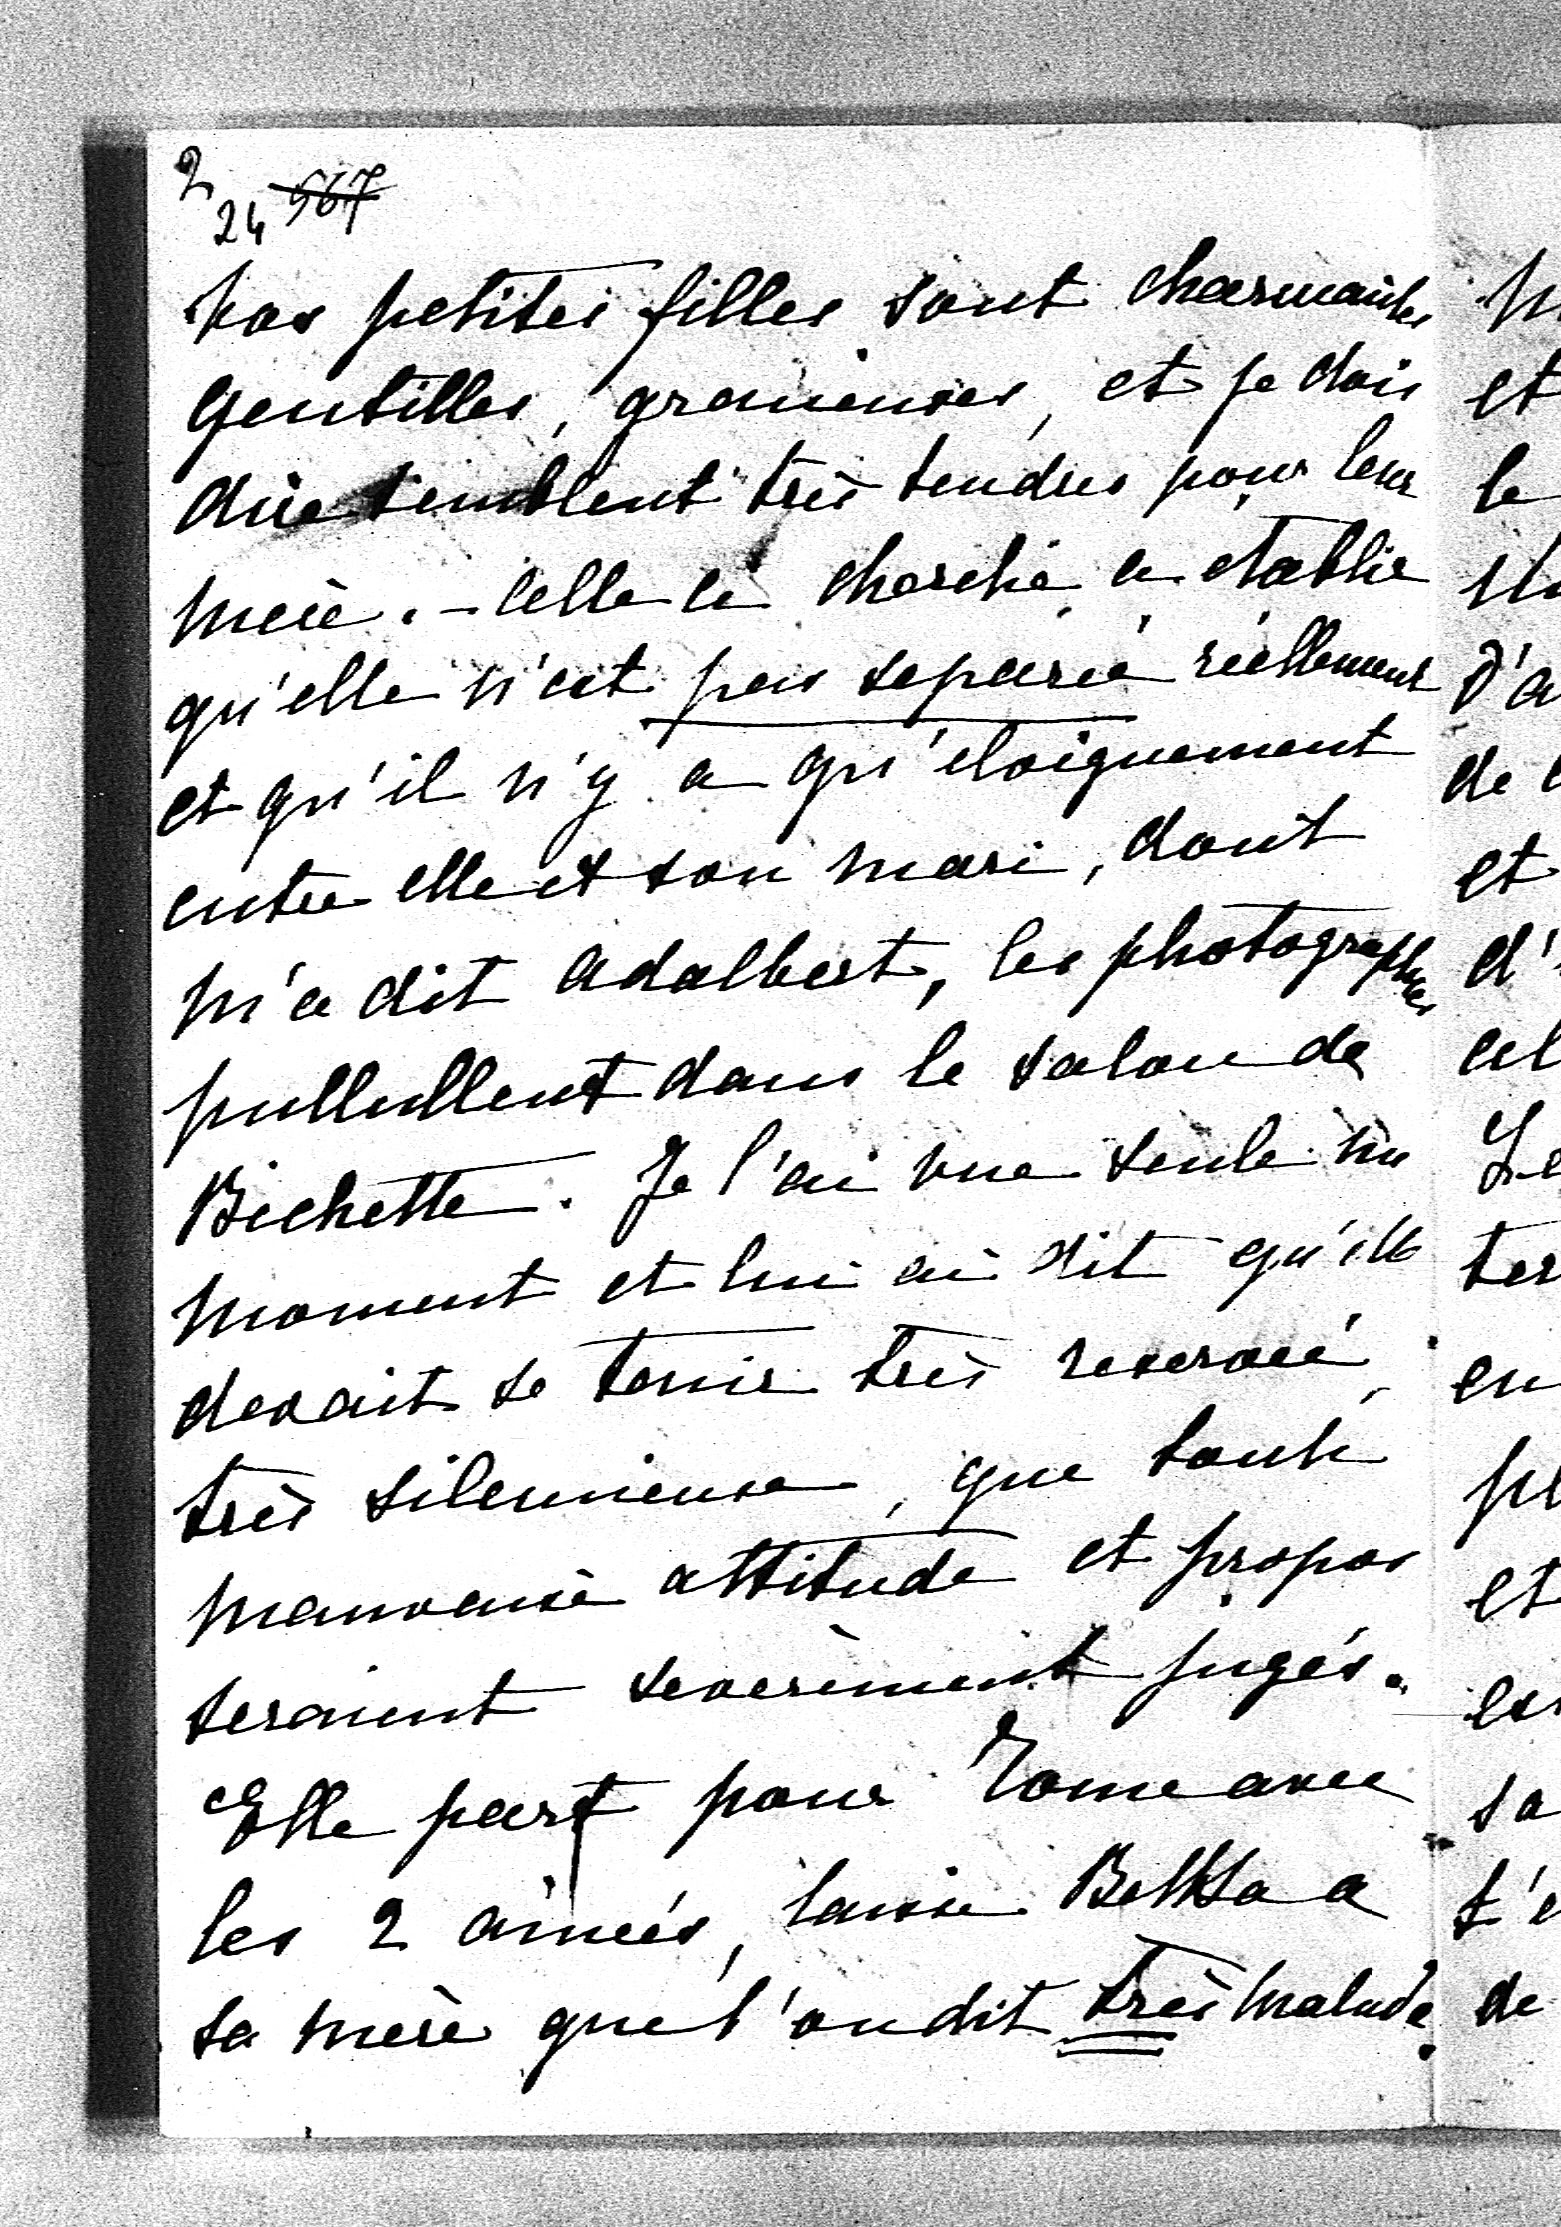 2
24 567
Vos petites filles sont charmantes
gentilles, gracieuses, et je dois
dire semblent très tendres pour leur
mère. - Celle ci cherche a etablir
qu'elle n'est pas separée réellement
et qu'il n'y a qu'eloignement
entre elle et son mari, dont
m'a dit Adalbert, les photographies
pullullent dans le salon de
Bichette. Je l'ai vue seule un
moment et lui ai dit qu'elle
devait se tenir très reservée,
très silencieuse, que toute
mauvaise attitude et propos
seraient severèment jugés.
Elle part pour Rome avec
les 2 ainées, laisse Bettsa a
sa mère que l'on dit très malade.